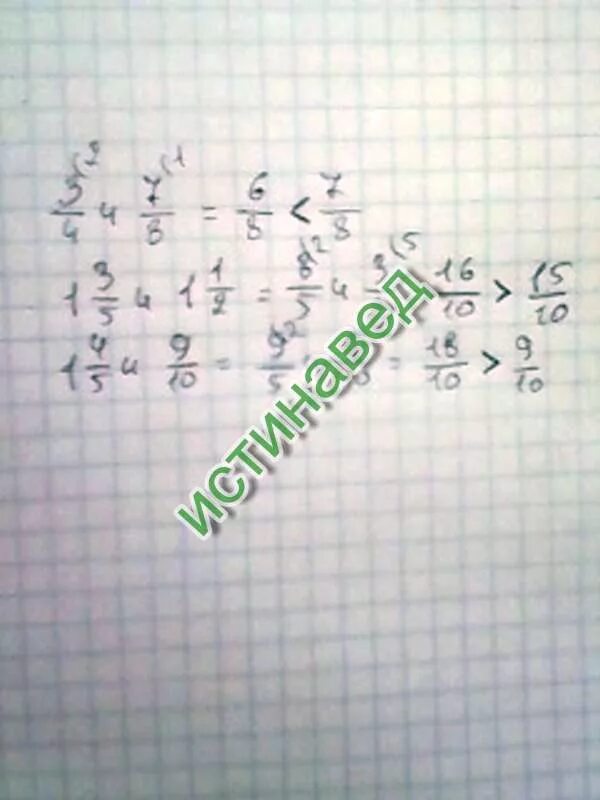 3/4 (2 и 7/8 (1 = 6/8 < 7/8
1 3/5 и 1 1/2 = 8/5 (2 и 3 (5 16/10 > 15/10
1 4/5 и 9/10 = 9/5 (2 = 18/10 > 9/10
истинавед